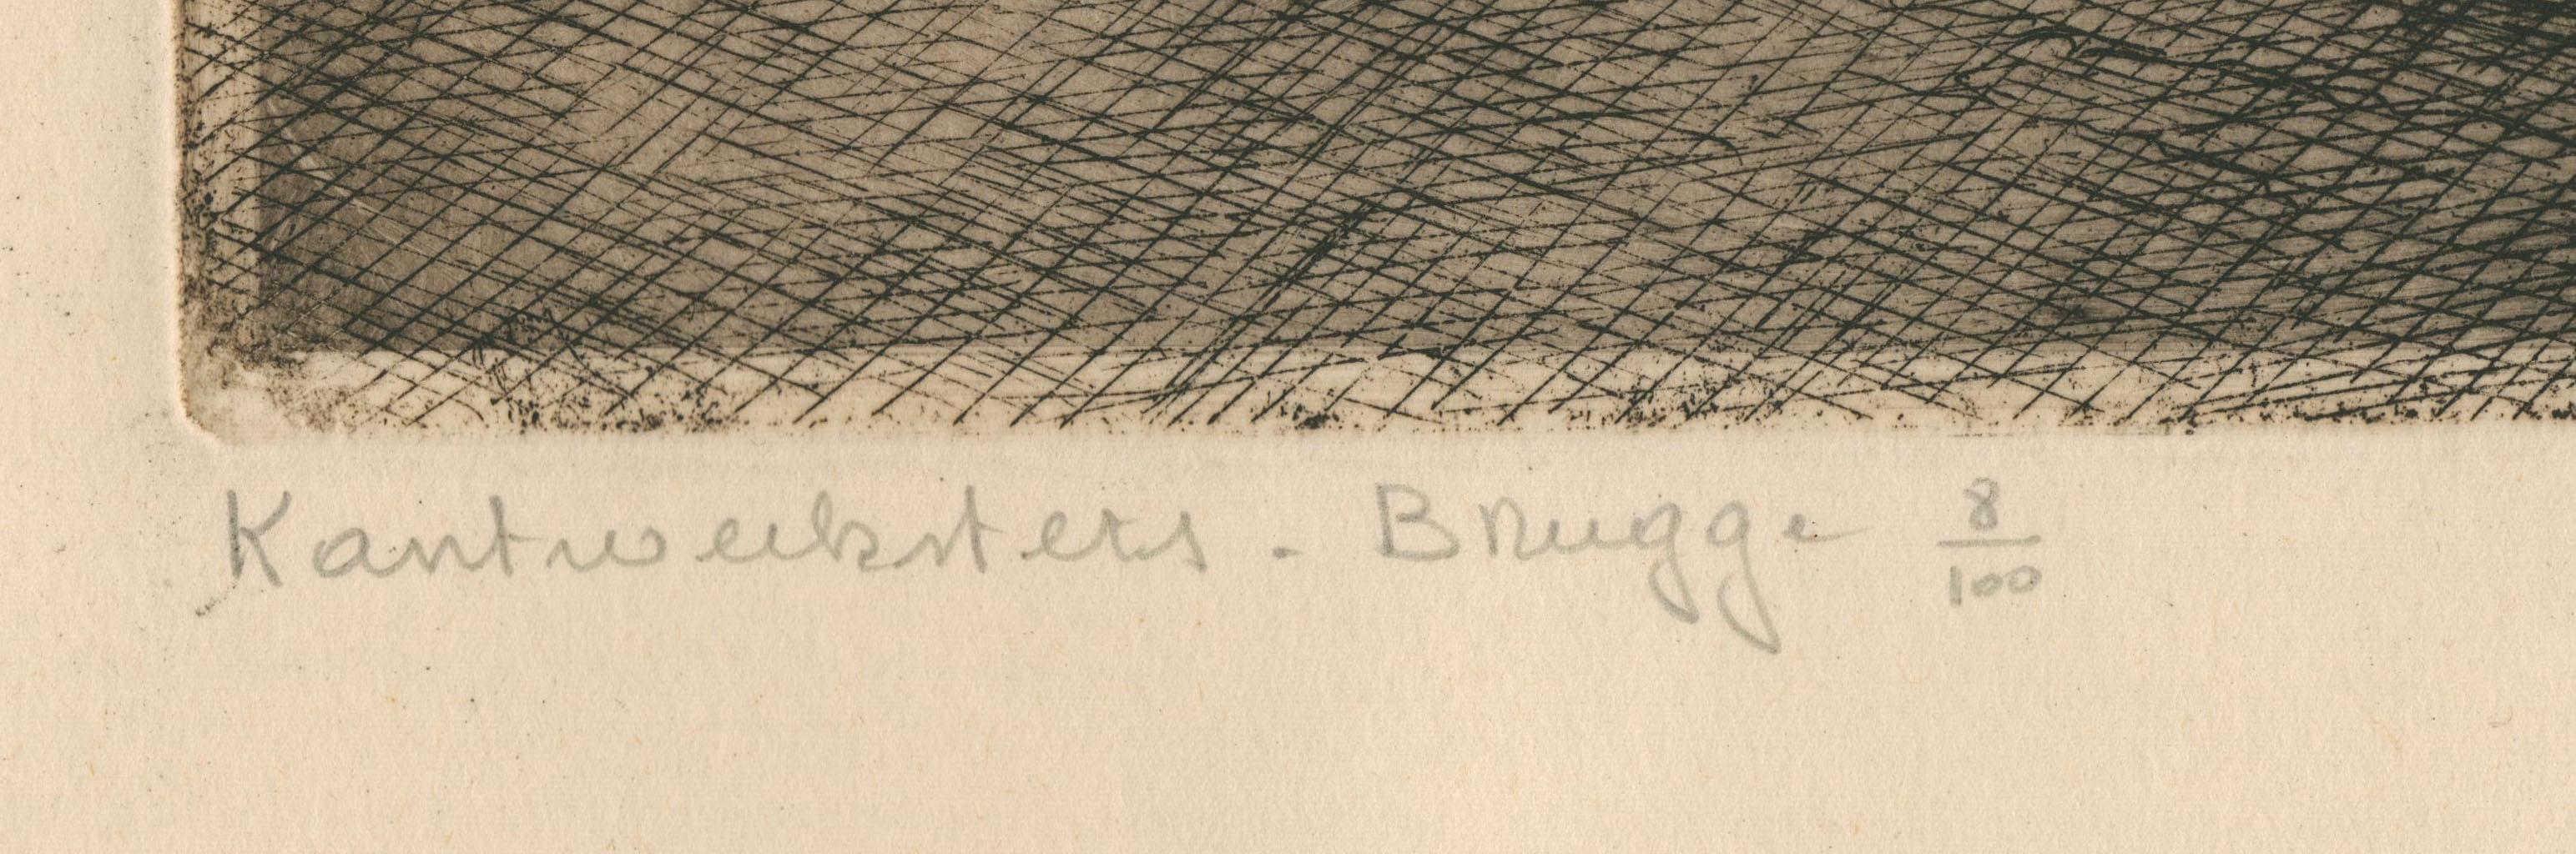 Kantwerksters. Brugge 8/100